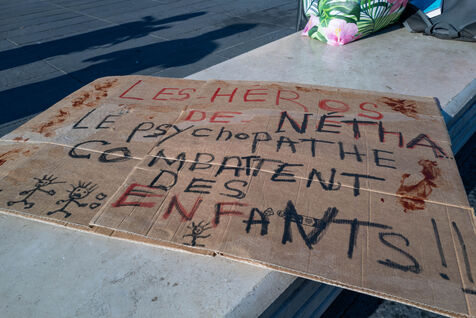 LES HEROS
DE NÉTHA
LE PSYCHOPATHE
COMBATTENT
DES
ENFANTS!!